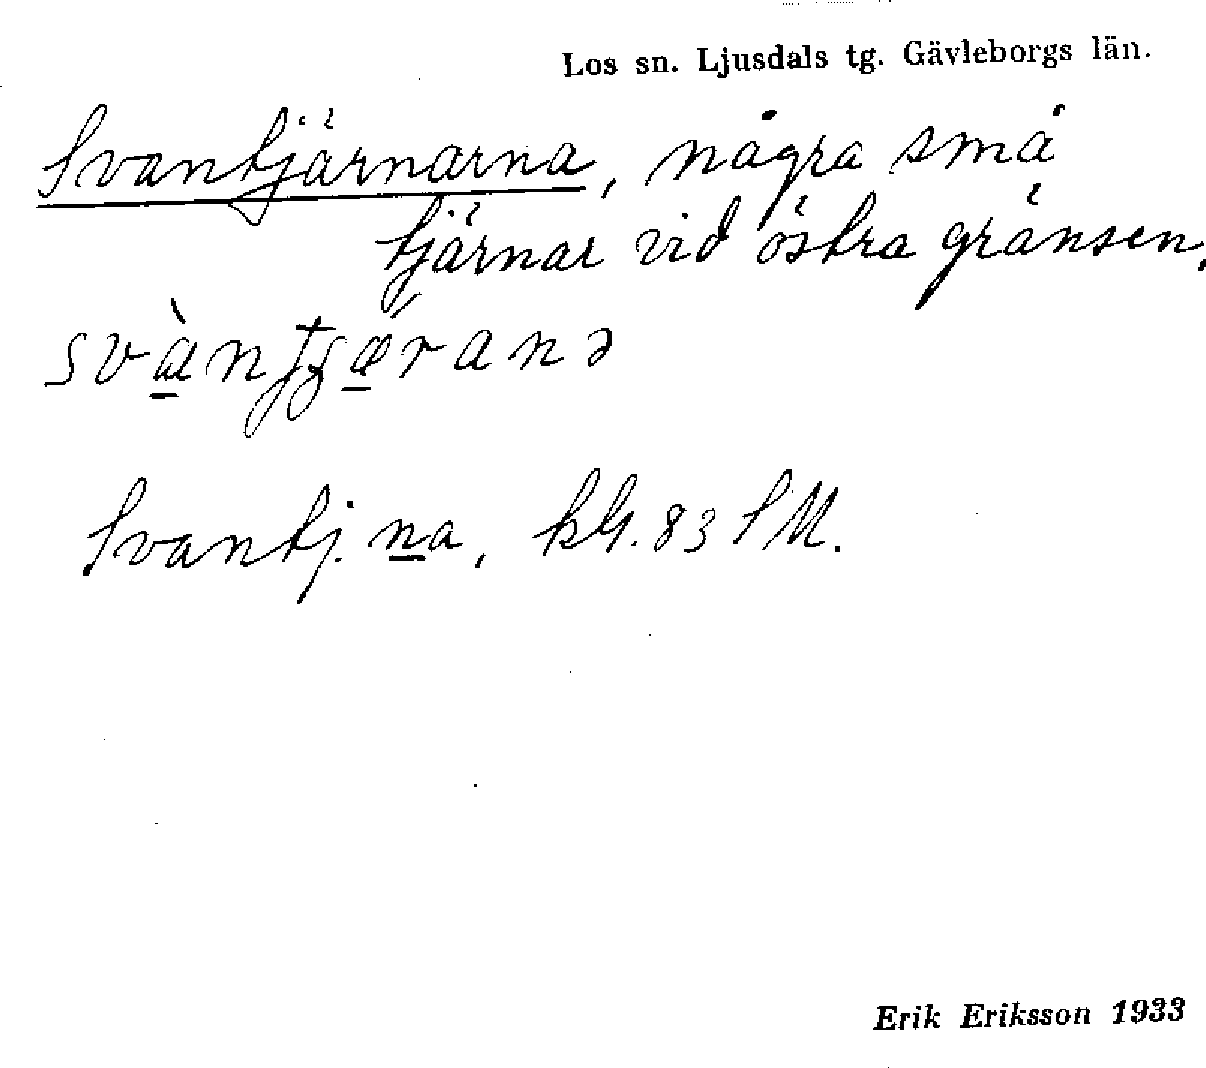 Los sn. Ljusdals tg. Gävleborgs län.
Svantjärnarna, några små
tjärnar vid östra gränsen.
Svantj.na, 83 SM.
Erik Eriksson 1933